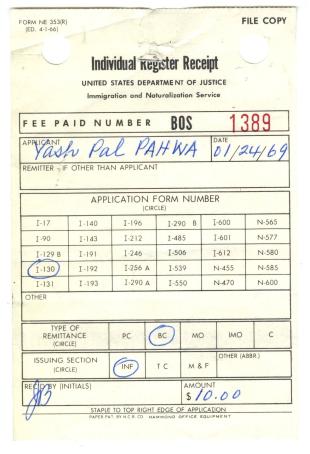 FORM NE 353(R)
(ED. 4-1-66)
FILE COPY
Individual Register Receipt
UNITED STATES DEPARTMENT OF JUSTICE
Immigration and Naturalization Service
FEE PAID NUMBER BOS 1389
APPLICANT DATE
Yash Pal PAHWA 01/24/69
REMITTER - IF OTHER THAN APPLICANT
APPLICATION FORM NUMBER
(CIRCLE)
I-17 I-140 I-196 I-290 B I-600 N-565
I-90 I-143 I-212 I-485 I-601 N-577
I-129 B I-191 I-246 I-506 I-612 N-580
I-130 I-192 I-256 A I-539 N-455 N-585
I-131 I-193 I-290 A I-550 N-470 N-600
OTHER
TYPE OF
REMITTANCE
(CIRCLE)
PC BC MO IMO C
ISSUING SECTION
(CIRCLE)
INF T C M & F
OTHER (ABBR.)
REC'D BY (INITIALS) AMOUNT
$ 10.00
STAPLE TO TOP RIGHT EDGE OF APPLICATION
PAPER PAT. BY N.C.R. CO. HAMMOND OFFICE EQUIPMENT